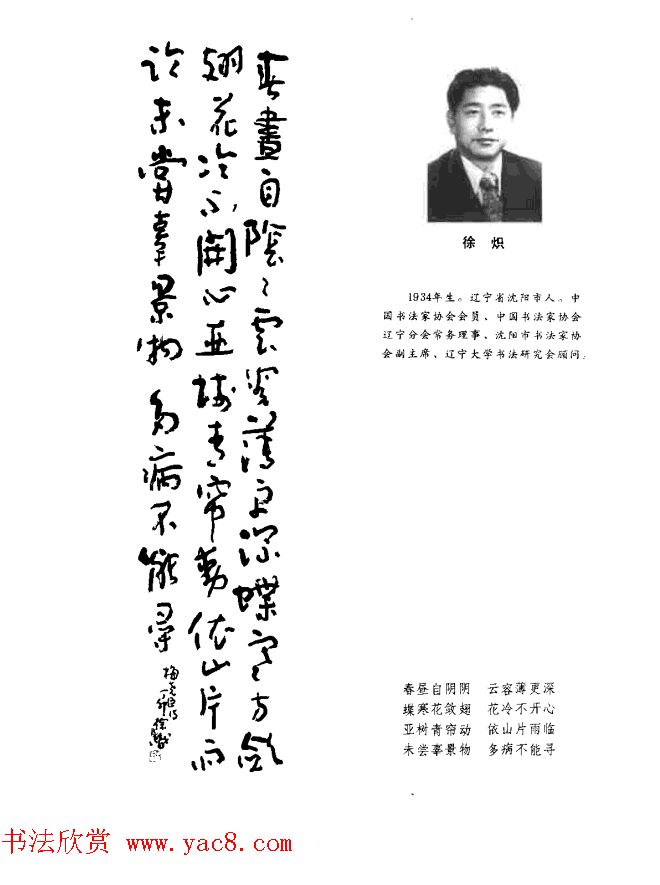 春晝自陰〻雲容薄更深蝶寒方斂
翅花冷不開心亞樹青帘動依山片雨
臨未嘗辜景物多病不能尋
梅堯臣詩
徐炽
1934年生。辽宁省沈阳市人。中
国书法家协会会员、中国书法家协会
辽宁分会常务理事、沈阳市书法家协
会副主席、辽宁大学书法研究会顾问。
春昼自阴阴 云容薄更深
蝶寒花敛翅 花冷不开心
亚树青帘动 依山片雨临
未尝辜景物 多病不能寻
书法欣赏 www.yac8.com